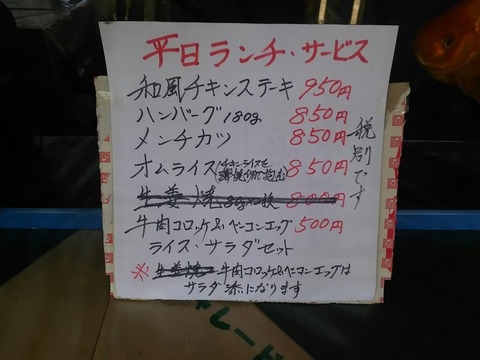 平日ランチ・サービス
和風チキンステーキ 950円
ハンバーグ180g 850円
メンチカツ 850円
オムライス(チキンライスを薄焼卵で包む) 850円
生姜焼 800円
牛肉コロッケ&ベーコンエッグ 500円
ライス、サラダセット
税別です
※ 生姜焼 牛肉コロッケ&ベーコンエッグは
サラダ添になります